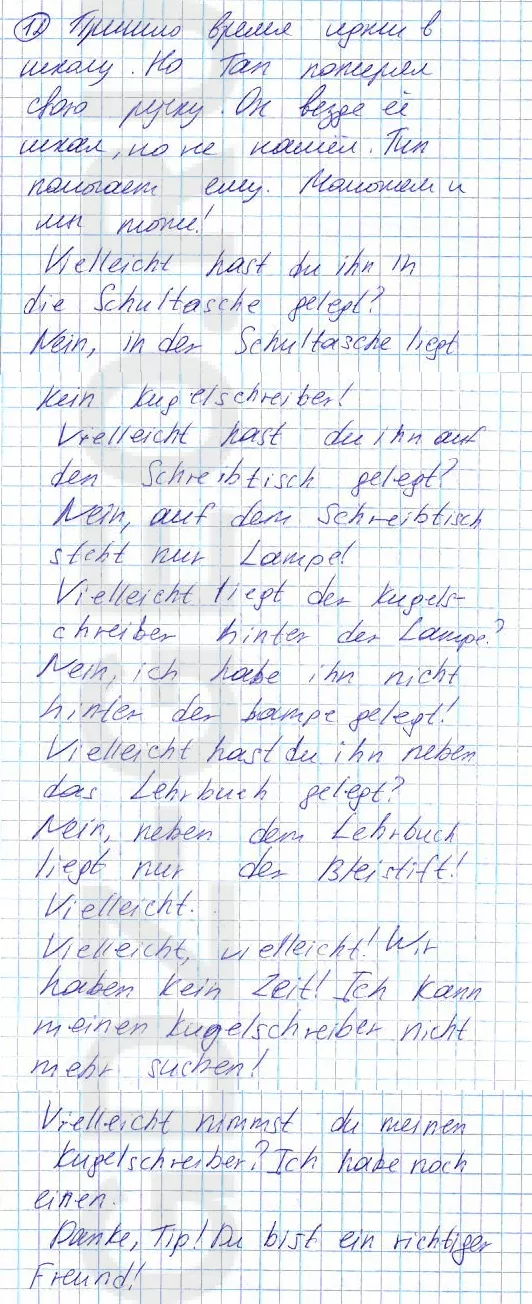 12 Пришло время идти в
школу. Но Тап потерял
свою ручку. Он везде её
искал, но не нашёл. Тип
помогает ему. Поможем и
мы тоже!
Vielleicht hast du ihn in
die Schultasche gelegt?
Nein, in der Schultasche liegt
kein Kugelschreiber!
Vielleicht hast du ihn auf
den Schreibtisch gelegt?
Nein, auf dem Schreibtisch
steht nur Lampe!
Vielleicht liegt der Kugels-
chreiber hinter der Lampe?
Nein, ich habe ihn nicht
hinter der Lampe gelegt!
Vielleicht hast du ihn neben
das Lehrbuch gelegt?
Nein, neben dem Lehrbuch
liegt nur der Bleistift!
Vielleicht.
Vielleicht, vielleicht! Wir
haben kein Zeit! Ich kann
meinen Kugelschreiber nicht
mehr suchen!
Vielleicht nimmst du meinen
Kugelschreiber? Ich habe noch
einen.
Danke, Tip! Du bist ein richtiger
Freund!